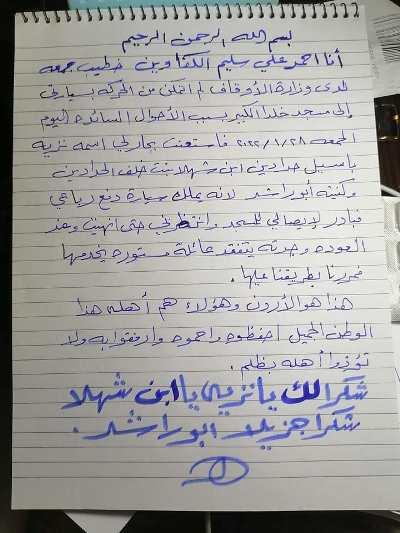 بسم الله الرحمن الرحيم
أنا احمد علي سليم الكفاوين خطيب جمعه
لدى وزارة الأوقاف لم اتمكن من الحركة بسيارتي
إلى مسجد خلدا الكبير بسبب الأحوال السائده اليوم
الجمعه ٢٠٢٢/١/٢٨ فاستعنت بجار لي اسمه نزيه
باسيل حدادين ابن شهلا بنت خلف الحدادين
وكنيته أبو راشد لانه يملك سيارة دفع رباعي
فبادر لإيصالي للمسجد وانتظرني حتى انهيت وعند
العوده وجدته يتفقد عائلة مستوره يخدمها
مررنا بطريقنا عليها.
هذا هو الأردن وهؤلاء هم أهله هذا
الوطن الجميل احفظوه واحموه وارفقوا به ولا
تؤذوا أهله بظلم.
شكرا لك يا نزيه يا ابن شهلا
شكرا جزيلا ابو راشد.